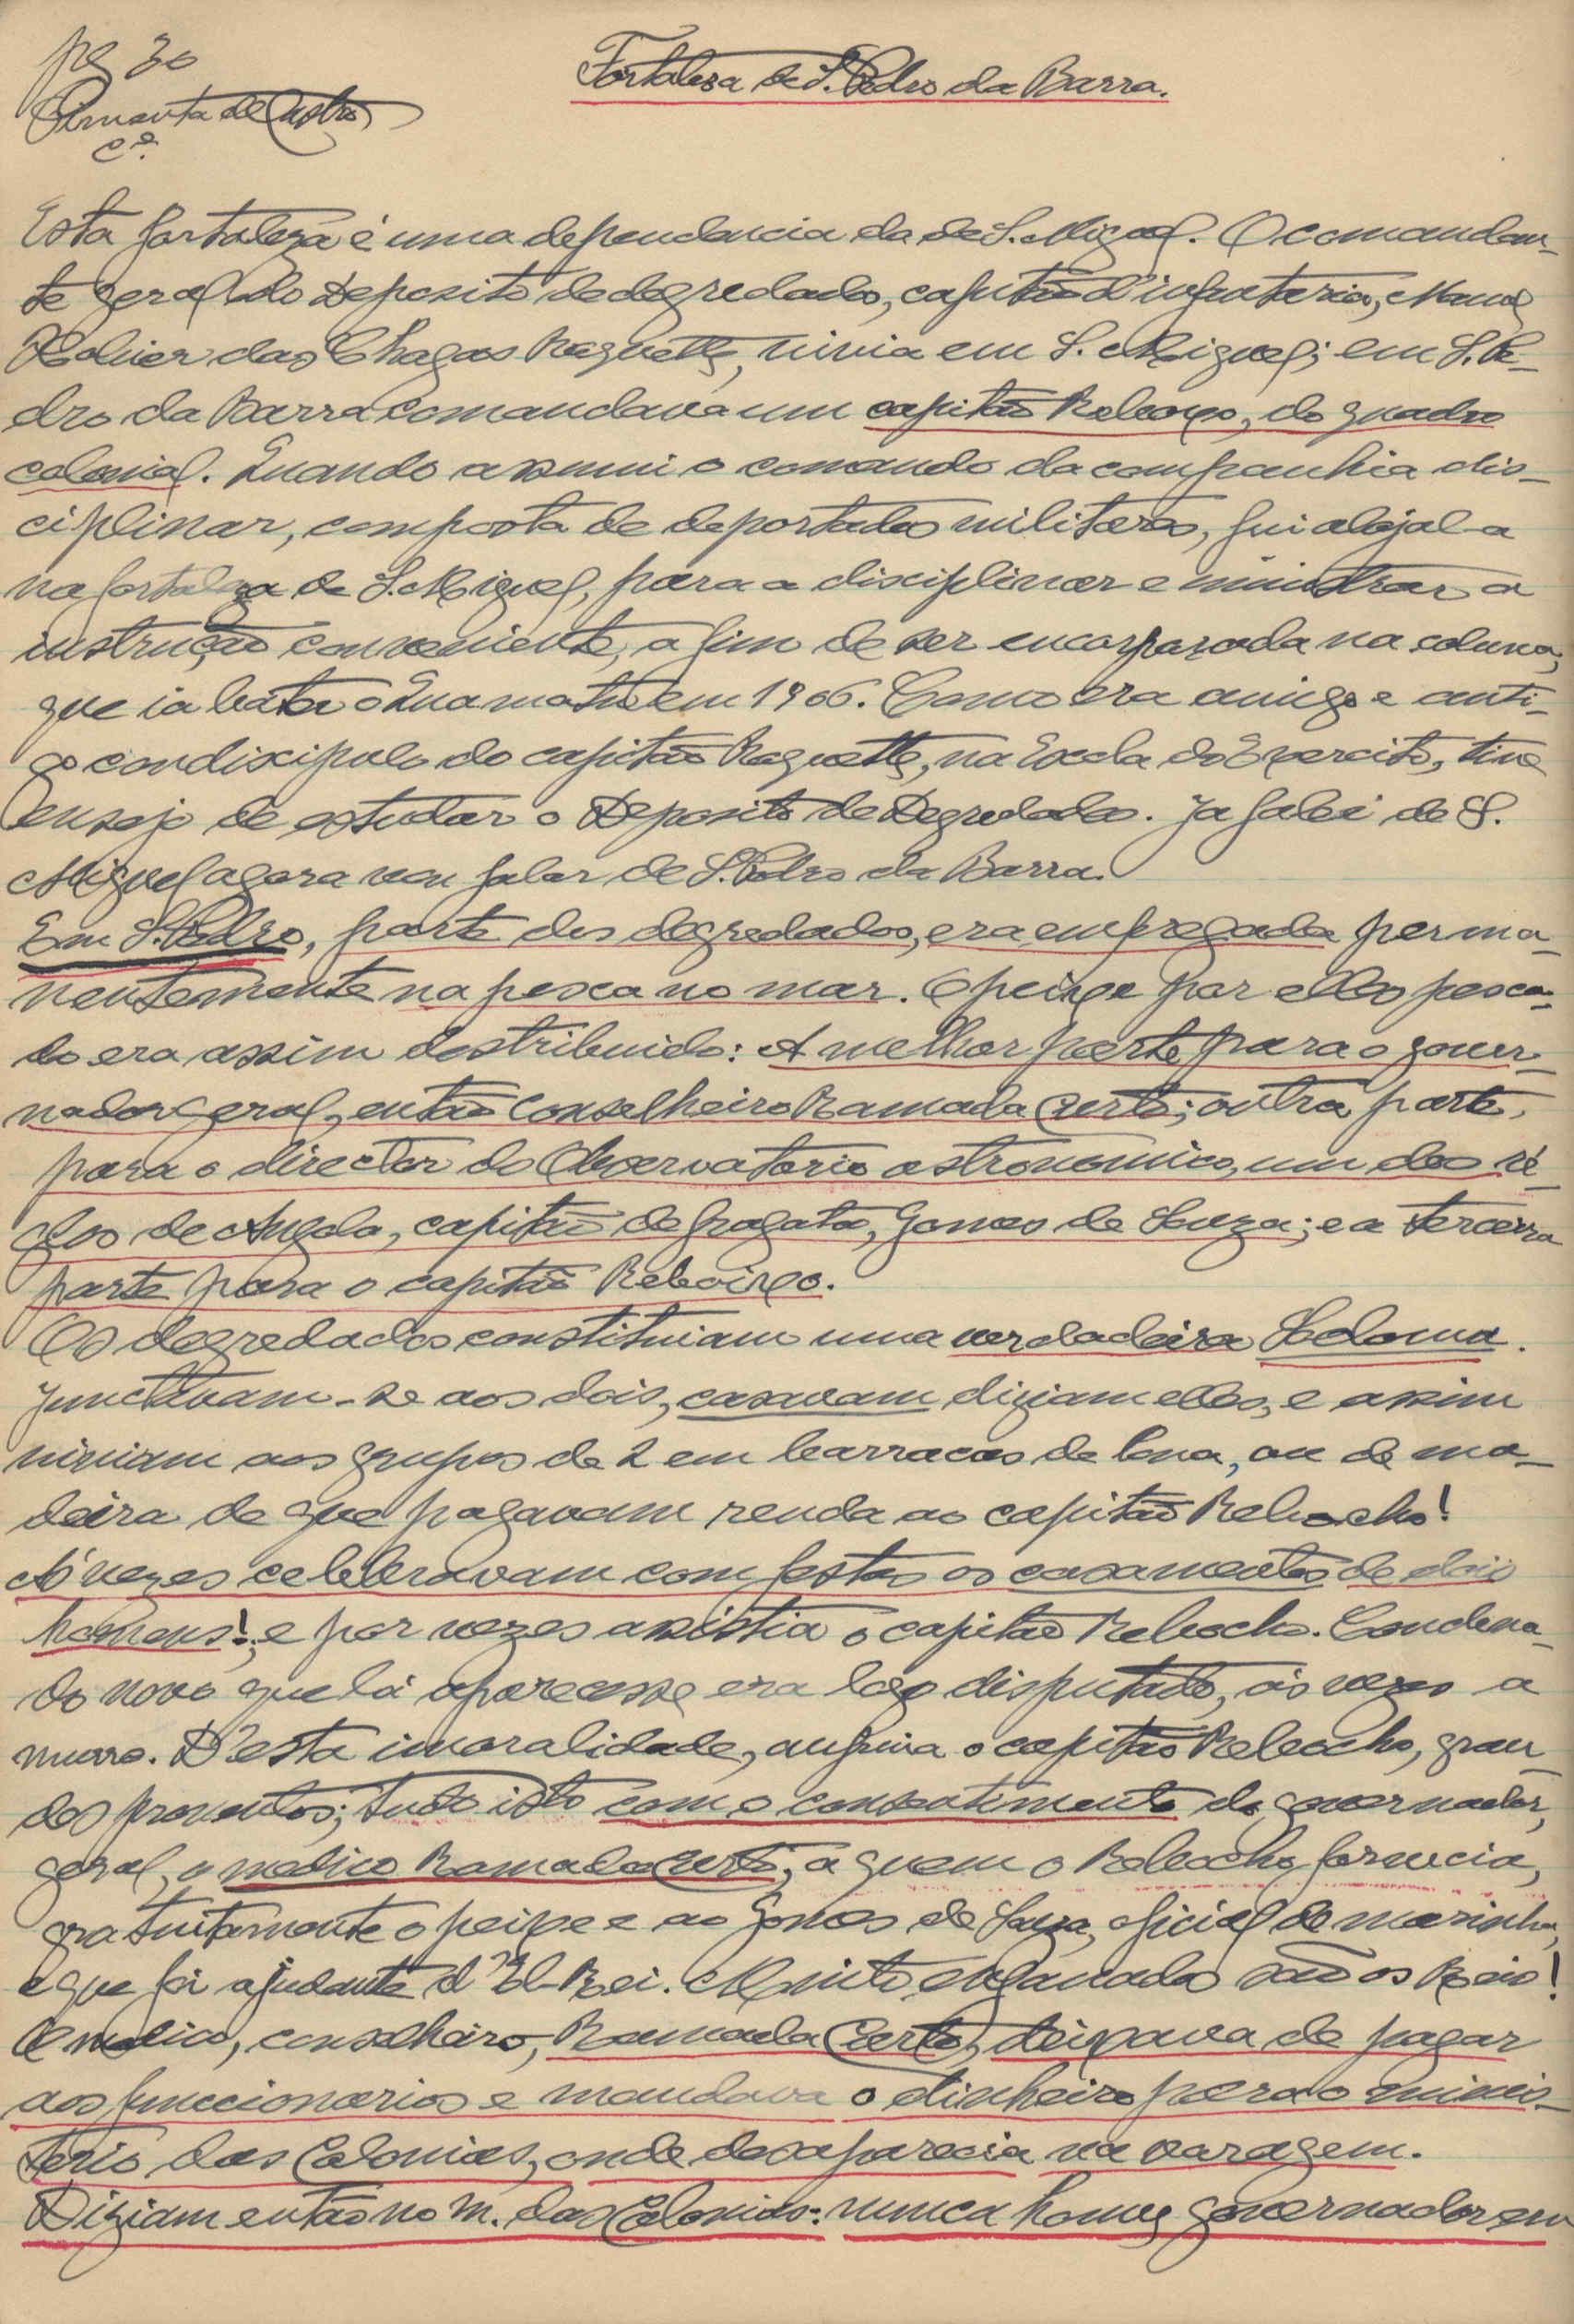 pg 30
Pimenta de Castro
Cel.
Fortalesa de S. Pedro da Barra.
Esta fortaleza é uma dependencia da de S. Miguel. O comandan-
te geral do Deposito de degredados, capitão d'infantaria, Manoel
das Chagas Roquette, vivia em S. Miguel; em S. Pe-
dro da Barra comandava um capitão Reboxo, do quadro
colonial. Quando assumi o comando da companhia dis-
ciplinar, composta de deportados militares, fui alojal-a
na fortaleza de S. Miguel, para a disciplinar e ministrar a
instrução conveniente, a fim de ser encorporada na coluna,
que ia bater o Cuamato em 1906. Como era amigo e anti-
go condiscipulo do capitão Roquette, na Escola do Exercito, tive
ensejo de estudar o Deposito de Degredados. Ja falei de S.
Miguel agora vou falar de S. Pedro da Barra.
Em S. Pedro, parte dos degredados, era empregada perma-
nentemente na pesca no mar. O peixe por elles pesca-
do era assim destribuido: A melhor parte para o gover-
nador geral, então Conselheiro Ramada Curto; outra parte,
para o director do Observatorio astronomico, um dos ré-
gulos de Angola, capitão de fragata, Gomes de Souza; e a terceira
parte para o capitão Reboixo.
Os degredados constituiam uma verdadeira Sodoma.
Junctavam-se aos dois, casavam diziam elles, e assim
viviam aos grupos de 2 em barracas de lona, ou de ma-
deira de que pagavam renda ao capitão Rebocho!
A's vezes celebravam com festas os casamentos de dois
homens!; e por vezes assistia o capitão Rebocho. Condena-
do novo que lá aparecesse era logo disputado, ás vezes a
murro. D'esta imoralidade, auferia o capitão Rebocho, gran-
des proventos; tudo isto com o consentimento do governador,
geral, o medico Ramada Curto, a quem o Rebocho fornecia,
gratuitamente o peixe e ao Gomes de Souza, oficial de marinha,
e que foi ajudante d'El-Rei. Muito enganados são os Reis!
O medico, conselheiro, Ramada Curto, deixava de pagar
aos funccionarios e mandava o dinheiro para o minis-
terio das Colonias, onde desaparecia na voragem.
Diziam então no M. das Colonias: nunca houve governador em